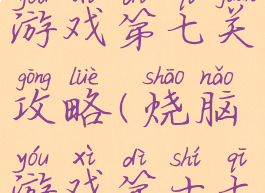 游戏第七关
gōng lüè shāo nǎo
攻略(烧脑
yóu xì dì shí qī
游戏第十七